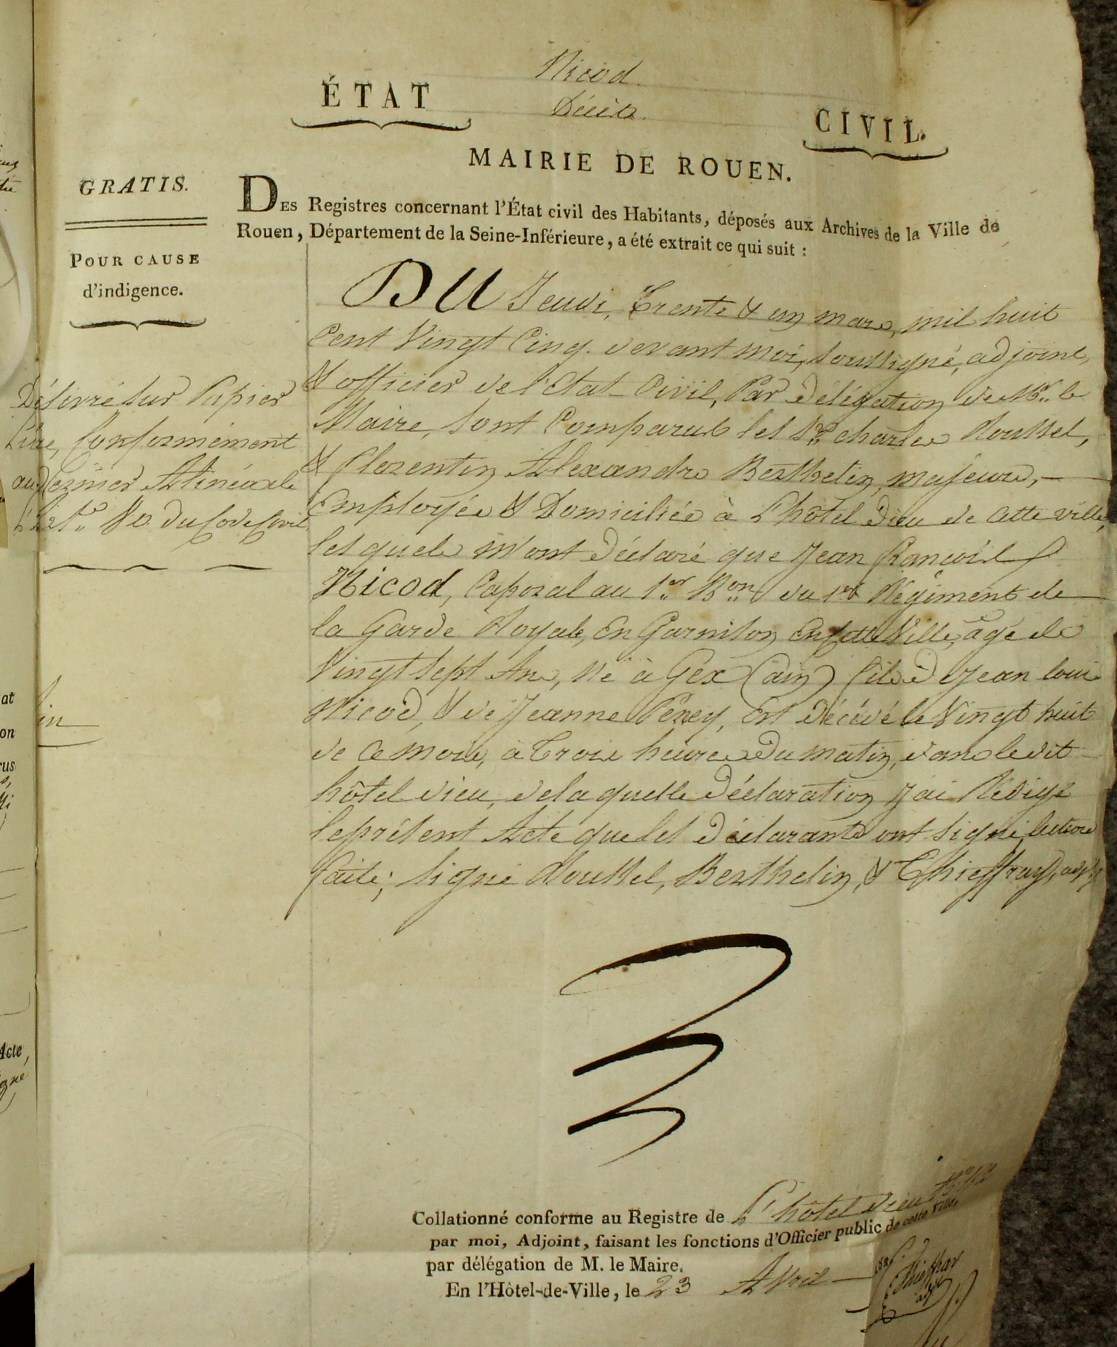 Nicod
Décès
ÉTAT
CIVIL.
MAIRIE DE ROUEN.
GRATIS.
POUR CAUSE
d'indigence.
DES Registres concernant l'État civil des Habitants, déposés aux Archives de la Ville de
Rouen, Département de la Seine-Inférieure, a été extrait ce qui suit :
Délivré sur Papier
Libre, Conformément
au Dernier Alinéa de
L'art. 80 du Code Civil
DU Jeudi, Trente & un mars, mil huit
Cent Vingt Cinq. devant moi, soussigné, adjoint,
& officier de l'Etat Civil, Par Délégation de Mr. le
Maire, sont Comparus les Srs charles Roussel,
& florentin Alexandre Berthelin, majeurs,
Employés & Domiciliés à L'hôtel Dieu de cette ville,
lesquels m'ont Déclaré que Jean francois
Nicod, Caporal au 1er Bon du 1er Régiment de
la Garde Royale, En Garnison En cette Ville, âgé de
Vingt sept Ans, Né à Gex (ain) fils de Jean louis
Nicod, & de Jeanne Perey, Est Décédé le Vingt huit
de ce mois, à Trois heures Du matin, dans le dit
hôtel dieu, de laquelle Déclaration j'ai Rédigé
le présent Acte que les Déclarants ont signé, lecture
faite; signé Roussel, Berthelin, &
Collationné conforme au Registre de L'hôtel Dieu
par moi, Adjoint, faisant les fonctions d'Officier public de cette Ville,
par délégation de M. le Maire.
En l'Hôtel-de-Ville, le 23 Avril
at
on
rus
in
Acte,